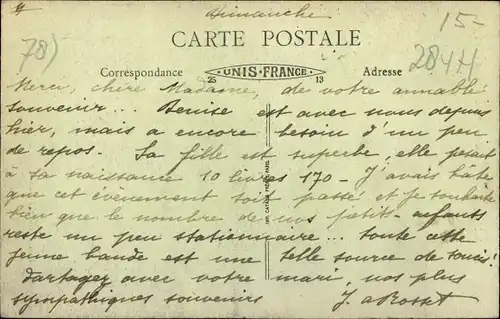 Dimanche
15-
78)
CARTE POSTALE
284H
Correspondance
UNIS-FRANCE
25
13
Adresse
Merci, chère Madame, de votre aimable
souvenir... Denise est avec nous depuis
hier, mais a encore besoin d'un peu
de repos. Sa fille est superbe, elle pesait
à sa naissance 10 livres 170 - J'avais hâte
que cet évènement soit passé et je souhaite
bien que le nombre de nos petits-enfants
reste un peu stationnaire... toute cette
jeune bande est une telle source de soucis!
Partagez avec votre mari, nos plus
sympathiques souvenirs